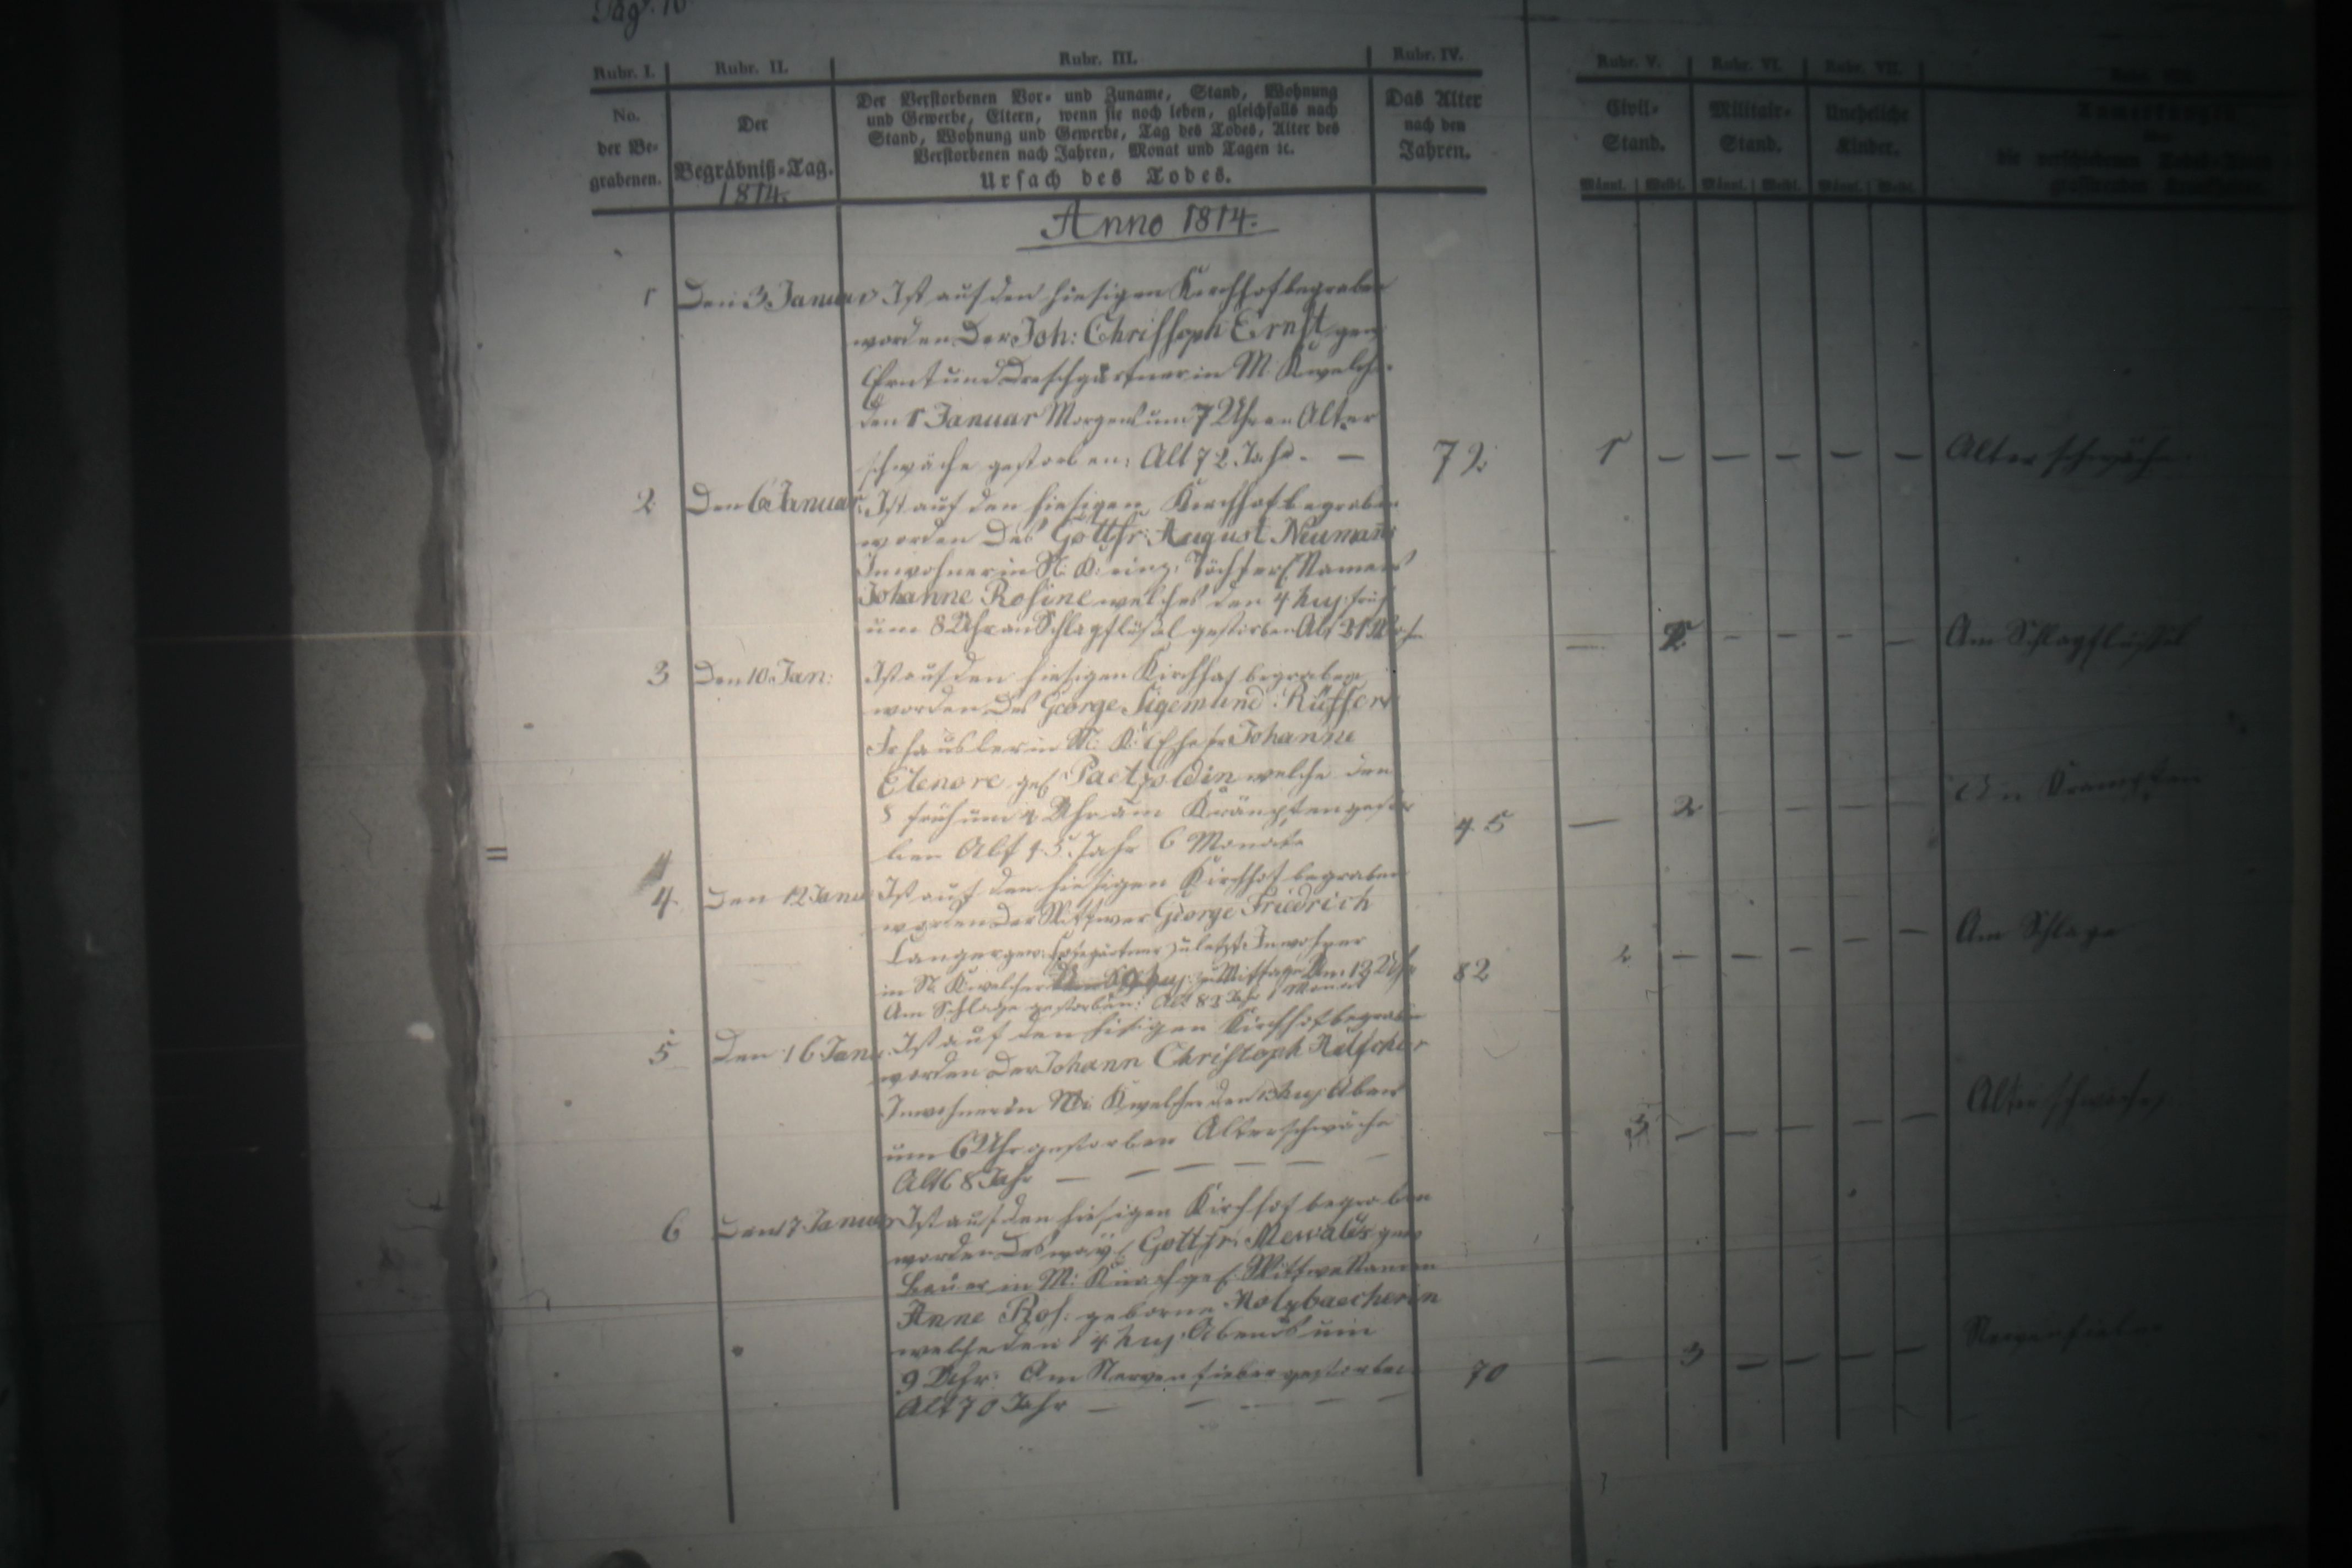 Pag. 10
Rubr. I.
Rubr. II.
Rubr. III.
Rubr. IV.
Rubr. V.
Rubr. VI.
Rubr. VII.
No.
der Be-
grabenen.
Der
Begräbniß-Tag.
1814.
Der Verstorbenen Vor- und Zuname, Stand, Wohnung
und Gewerbe, Eltern, wenn sie noch leben, gleichfalls nach
Stand, Wohnung und Gewerbe, Tag des Todes, Alter des
Verstorbenen nach Jahren, Monat und Tagen ic.
Ursach des Todes.
Das Alter
nach den
Jahren.
Civil-
Stand.
Männl. Weibl.
Militair-
Stand.
Männl. Weibl.
Uneheliche
Kinder.
Männl. Weibl.
Anmerkungen
Anno 1814.
1 Den 3. Januar Ist auf den hiesigen Kirchhof begraben
worden Der Joh: Christoph Ernst gew
und Dreschgärtner in M. K welcher
den 1 Januar Morgens um 7 Uhr an Alter
schwäche gestorben: Alt 72 Jahr. — 72. 1 — — — — — Alterschwäche
2. Den 6 Januar. Ist auf den hiesigen Kirchhof begraben
worden Des Gottfr: August Neumans
Inwohner in N: K: einz. Töchterl. Namens
Johanne Rosine welches den 4 huj. früh
um 8 Uhr an Schlagflüssel gestorben Alt — — — — — Am Schlagflüssel
3 Den 10. Jan: Ist auf den hiesigen Kirchhof begraben
worden Des George Sigemund Rüffers
Frhäusler in N: K: Ehefr Johanne
Elenore geb Paetzoldin welche den
8 früh um 4 Uhr am Krämpfen gestor
ben Alt 45. Jahr 6 Monate 45 — 2 — — — An Krampfen
4. Den 12 Janu. Ist auf den hiesigen Kirchhof begraben
worden Der Wittwer George Friedrich
Langer gew: Hofegärtner zuletzt Inwohner
in N. K welcher huj: zu Mittage Um 12 Uhr
Am Schlage gestorben: Alt 82 Jahr 1 Monat 82 2 — — — — — Am Schlage
5 Den 16 Janu. Ist auf den hiesigen Kirchhof begraben
worden Der Johann Christoph
Inwohner in K welcher den 13 huj Abend
um 6 Uhr gestorben Alterschwäche
Alt 68 Jahr — — — — — — 3 — — — — — Alterschwäche
6 Den 17 Januar Ist auf den hiesigen Kirchhof begraben
worden Des Gottfr: Mewalds gew
Bauer in M: K nachgel. Wittwe Namen
Anne Ros: geborne Holzbaecherin
welche den 14 huj. Abends um
9 Uhr: Am Nervenfieber gestorben
Alt 70 Jahr — — — — — 70 — 3 — — — — Nervenfieber